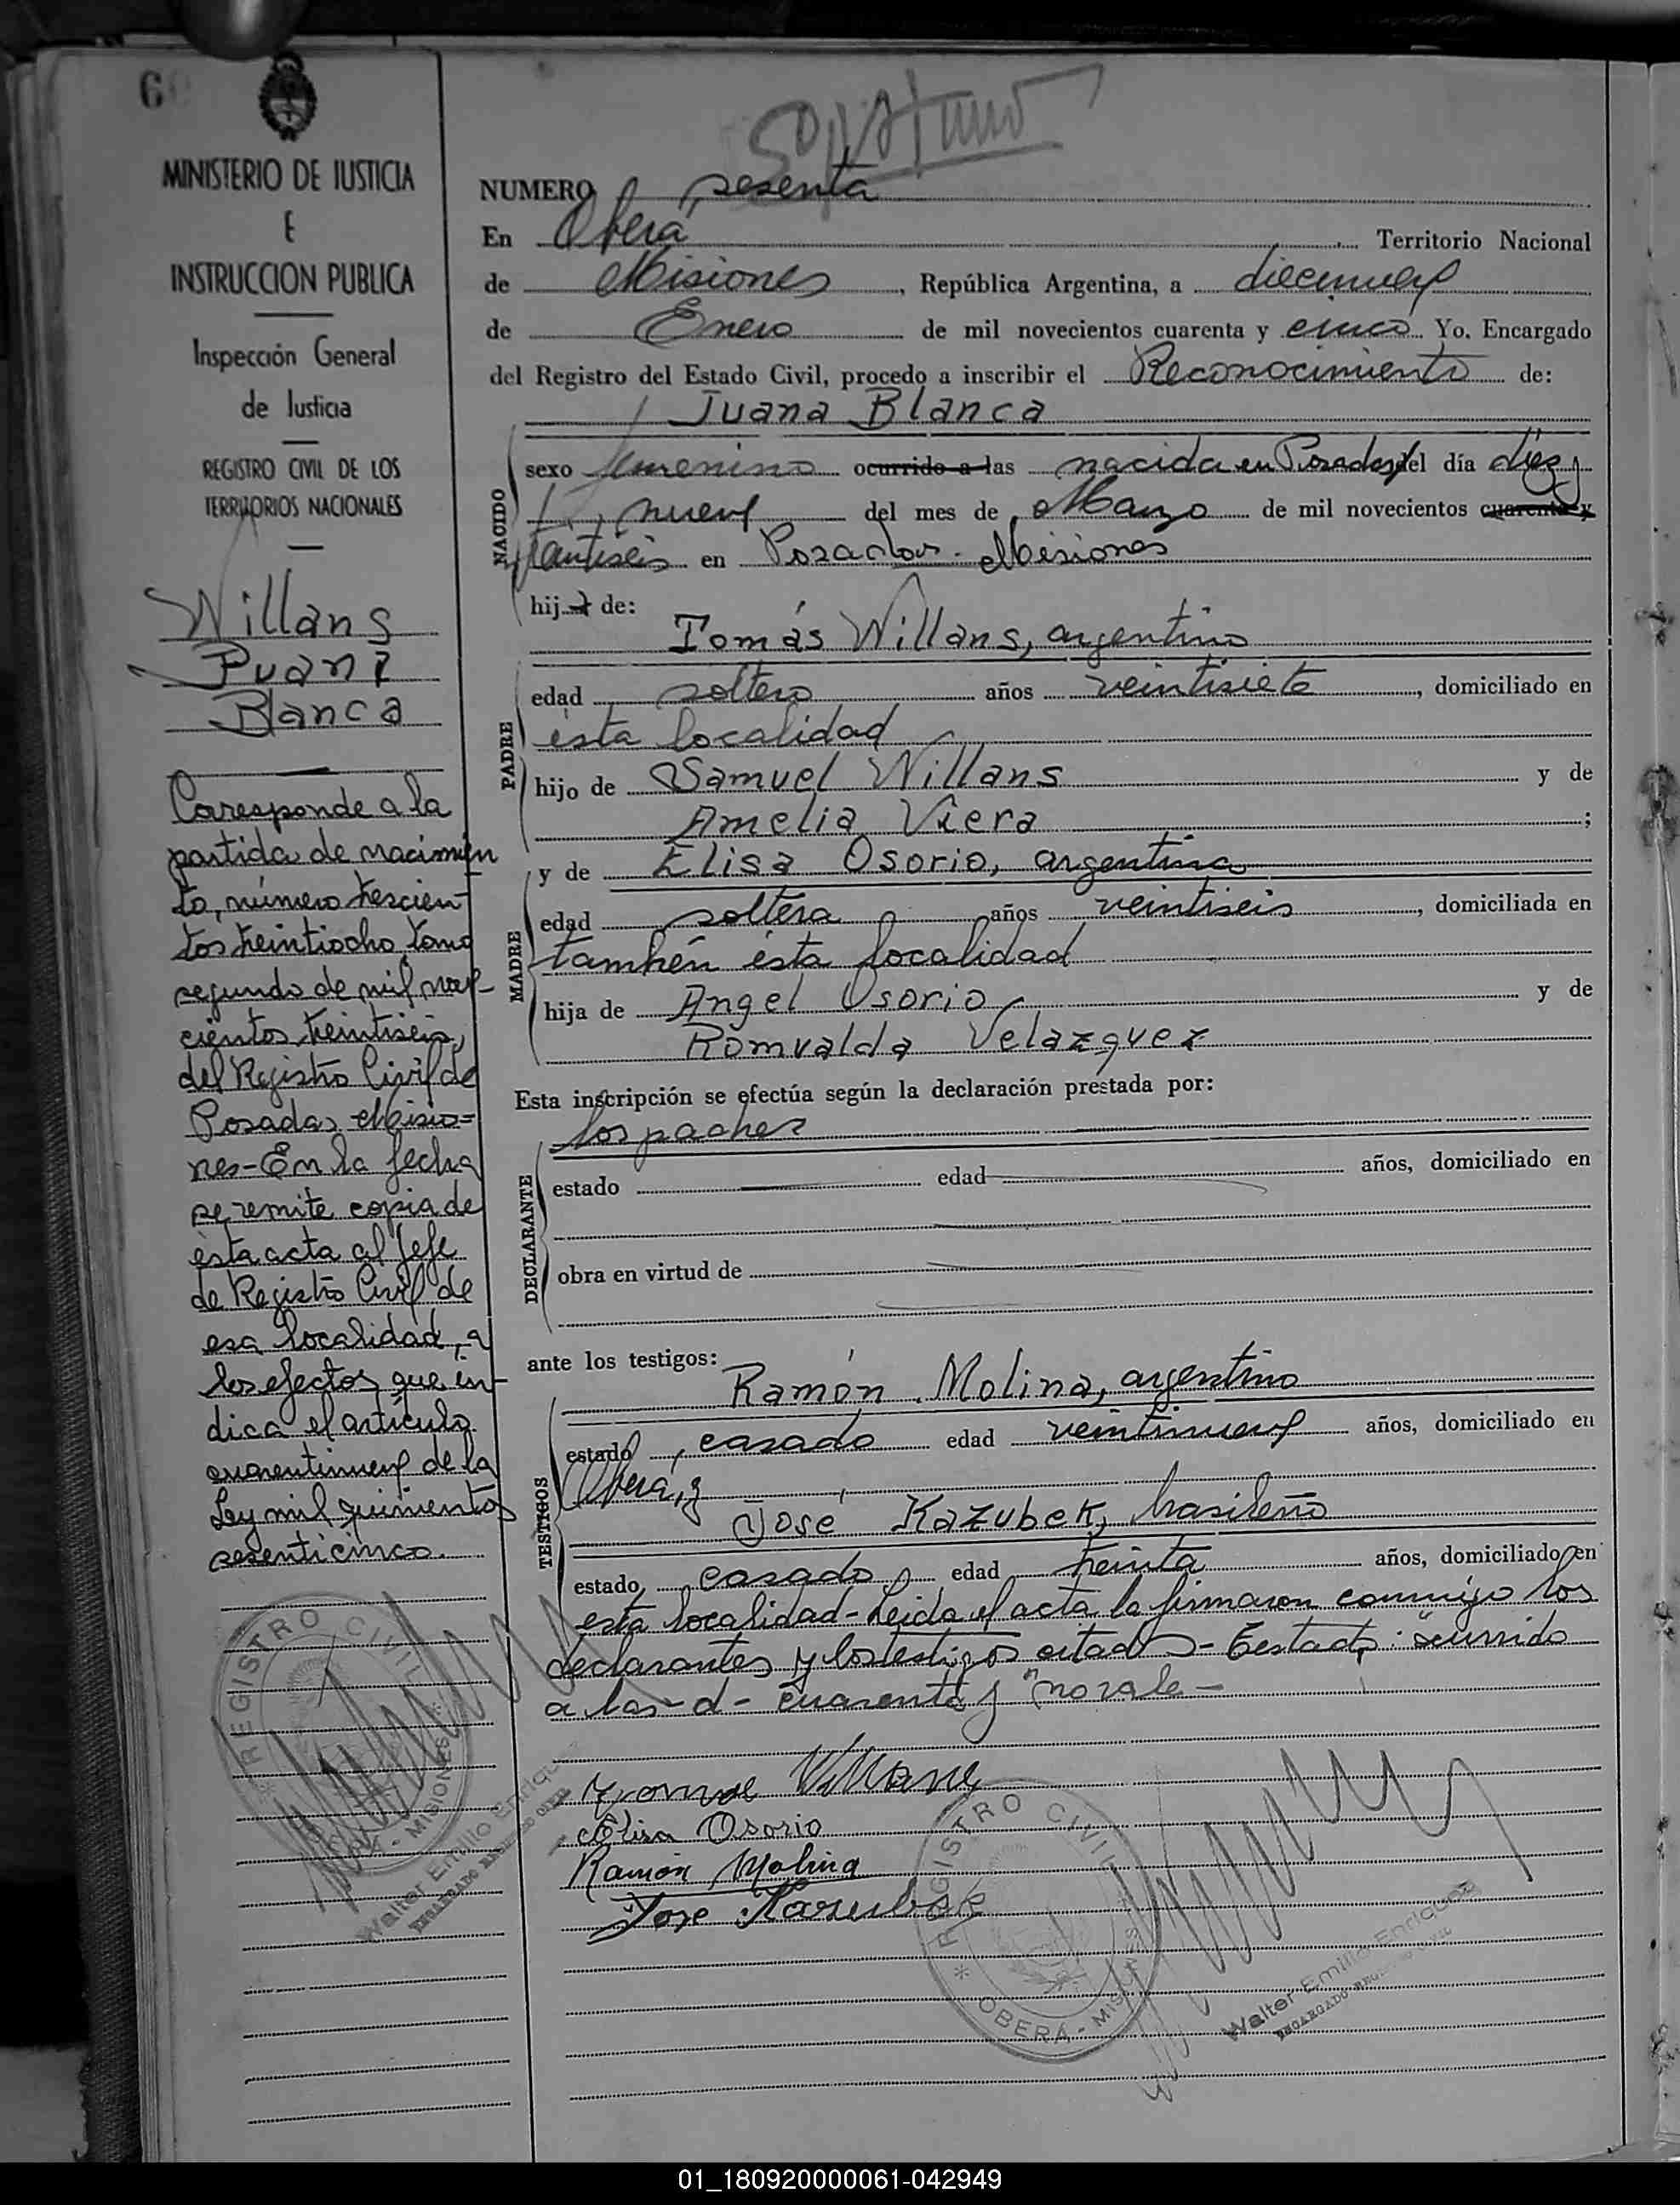 60
MINISTERIO DE JUSTICIA
E
INSTRUCCION PUBLICA
Inspección General
de Justicia
REGISTRO CIVIL DE LOS
TERRITORIOS NACIONALES
Willans
Juana
Blanca
Coresponde a la
partida de nacimien
to, número trescien-
tos treintiocho, tomo
segundo de mil nove-
cientos treintiseis,
del Registro Civil de
Posadas Misio=
nes-En la fecha
se remite copia de
ésta acta al Jefe
de Registro Civil de
esa localidad, a
los efectos que in-
dica el artículo
cuarentinueve de la
Ley mil quinientos
sesenticinco.
REGISTRO CIVIL
MISIONES
Walter Emilio Enrique
NUMERO sesenta
En Oberá Territorio Nacional
de Misiones, República Argentina, a diecinueve
de Enero de mil novecientos cuarenta y cinco Yo. Encargado
del Registro del Estado Civil, procedo a inscribir el Reconocimiento de:
Juana Blanca
NACIDO
sexo femenino ocurrido a las nacida en Posadas del día diez y
nueve del mes de Marzo de mil novecientos cuarenta y
treintiseis en Posadas - Misiones
hija de:
Tomás Willans, argentino
PADRE
edad soltero años veintisiete, domiciliado en
ésta localidad
hijo de Samuel Willans y de
Amelia Viera ;
y de Elisa Osorio, argentina
MADRE
edad soltera años veintiseis, domiciliada en
también ésta localidad
hija de Angel Osorio y de
Romualda Velazquez
Esta inscripción se efectúa según la declaración prestada por:
los padres
DECLARANTE
estado edad años, domiciliado en
obra en virtud de
ante los testigos:
Ramón Molina, argentino
TESTIGOS
estado casado edad veintinueve años, domiciliado en
Oberá, y
José Kazubek, brasileño
estado casado edad treinta años, domiciliado en
esta localidad - Leida el acta la firmaron conmigo los
declarantes y los testigos citados - Testado: "ocurrido
a las - d - cuarenta y" no vale -
Willans
Elisa Osorio
Ramón Molina
Jose Kazubek
REGISTRO CIVIL
OBERA - MISIONES
Walter Emilio Enriquez
ENCARGADO REGISTRO CIVIL
01_180920000061-042949